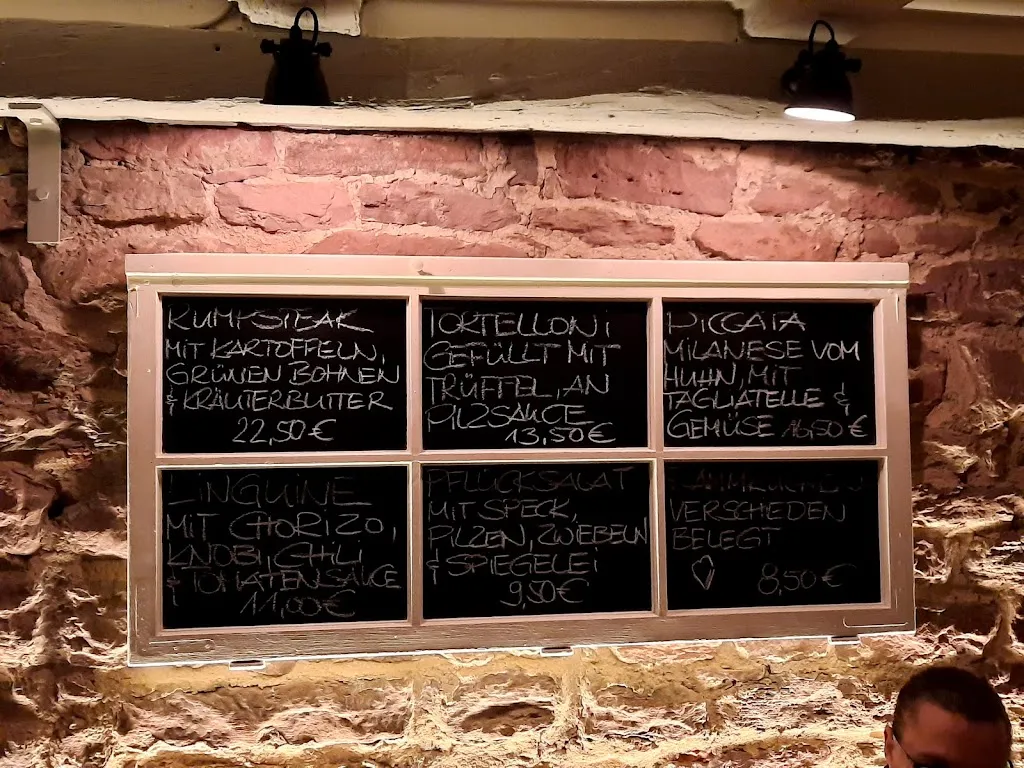 RUMPSTEAK
MIT KARTOFFELN,
GRÜNEN BOHNEN
& KRÄUTERBUTTER
22,50 €
TORTELLONI
GEFÜLLT MIT
TRÜFFEL, AN
PILZSAUCE
13,50 €
PICCATA
MILANESE VOM
HUHN, MIT
TAGLIATELLE &
GEMÜSE 16,50 €
LINGUINE
MIT CHORIZO,
KNOBI, CHILI
& TOMATENSAUCE
11,00 €
PFLÜCKSALAT
MIT SPECK,
PILZEN, ZWIEBELN
& SPIEGELEI
9,50 €
FLAMMKUCHEN
VERSCHIEDEN
BELEGT
8,50 €